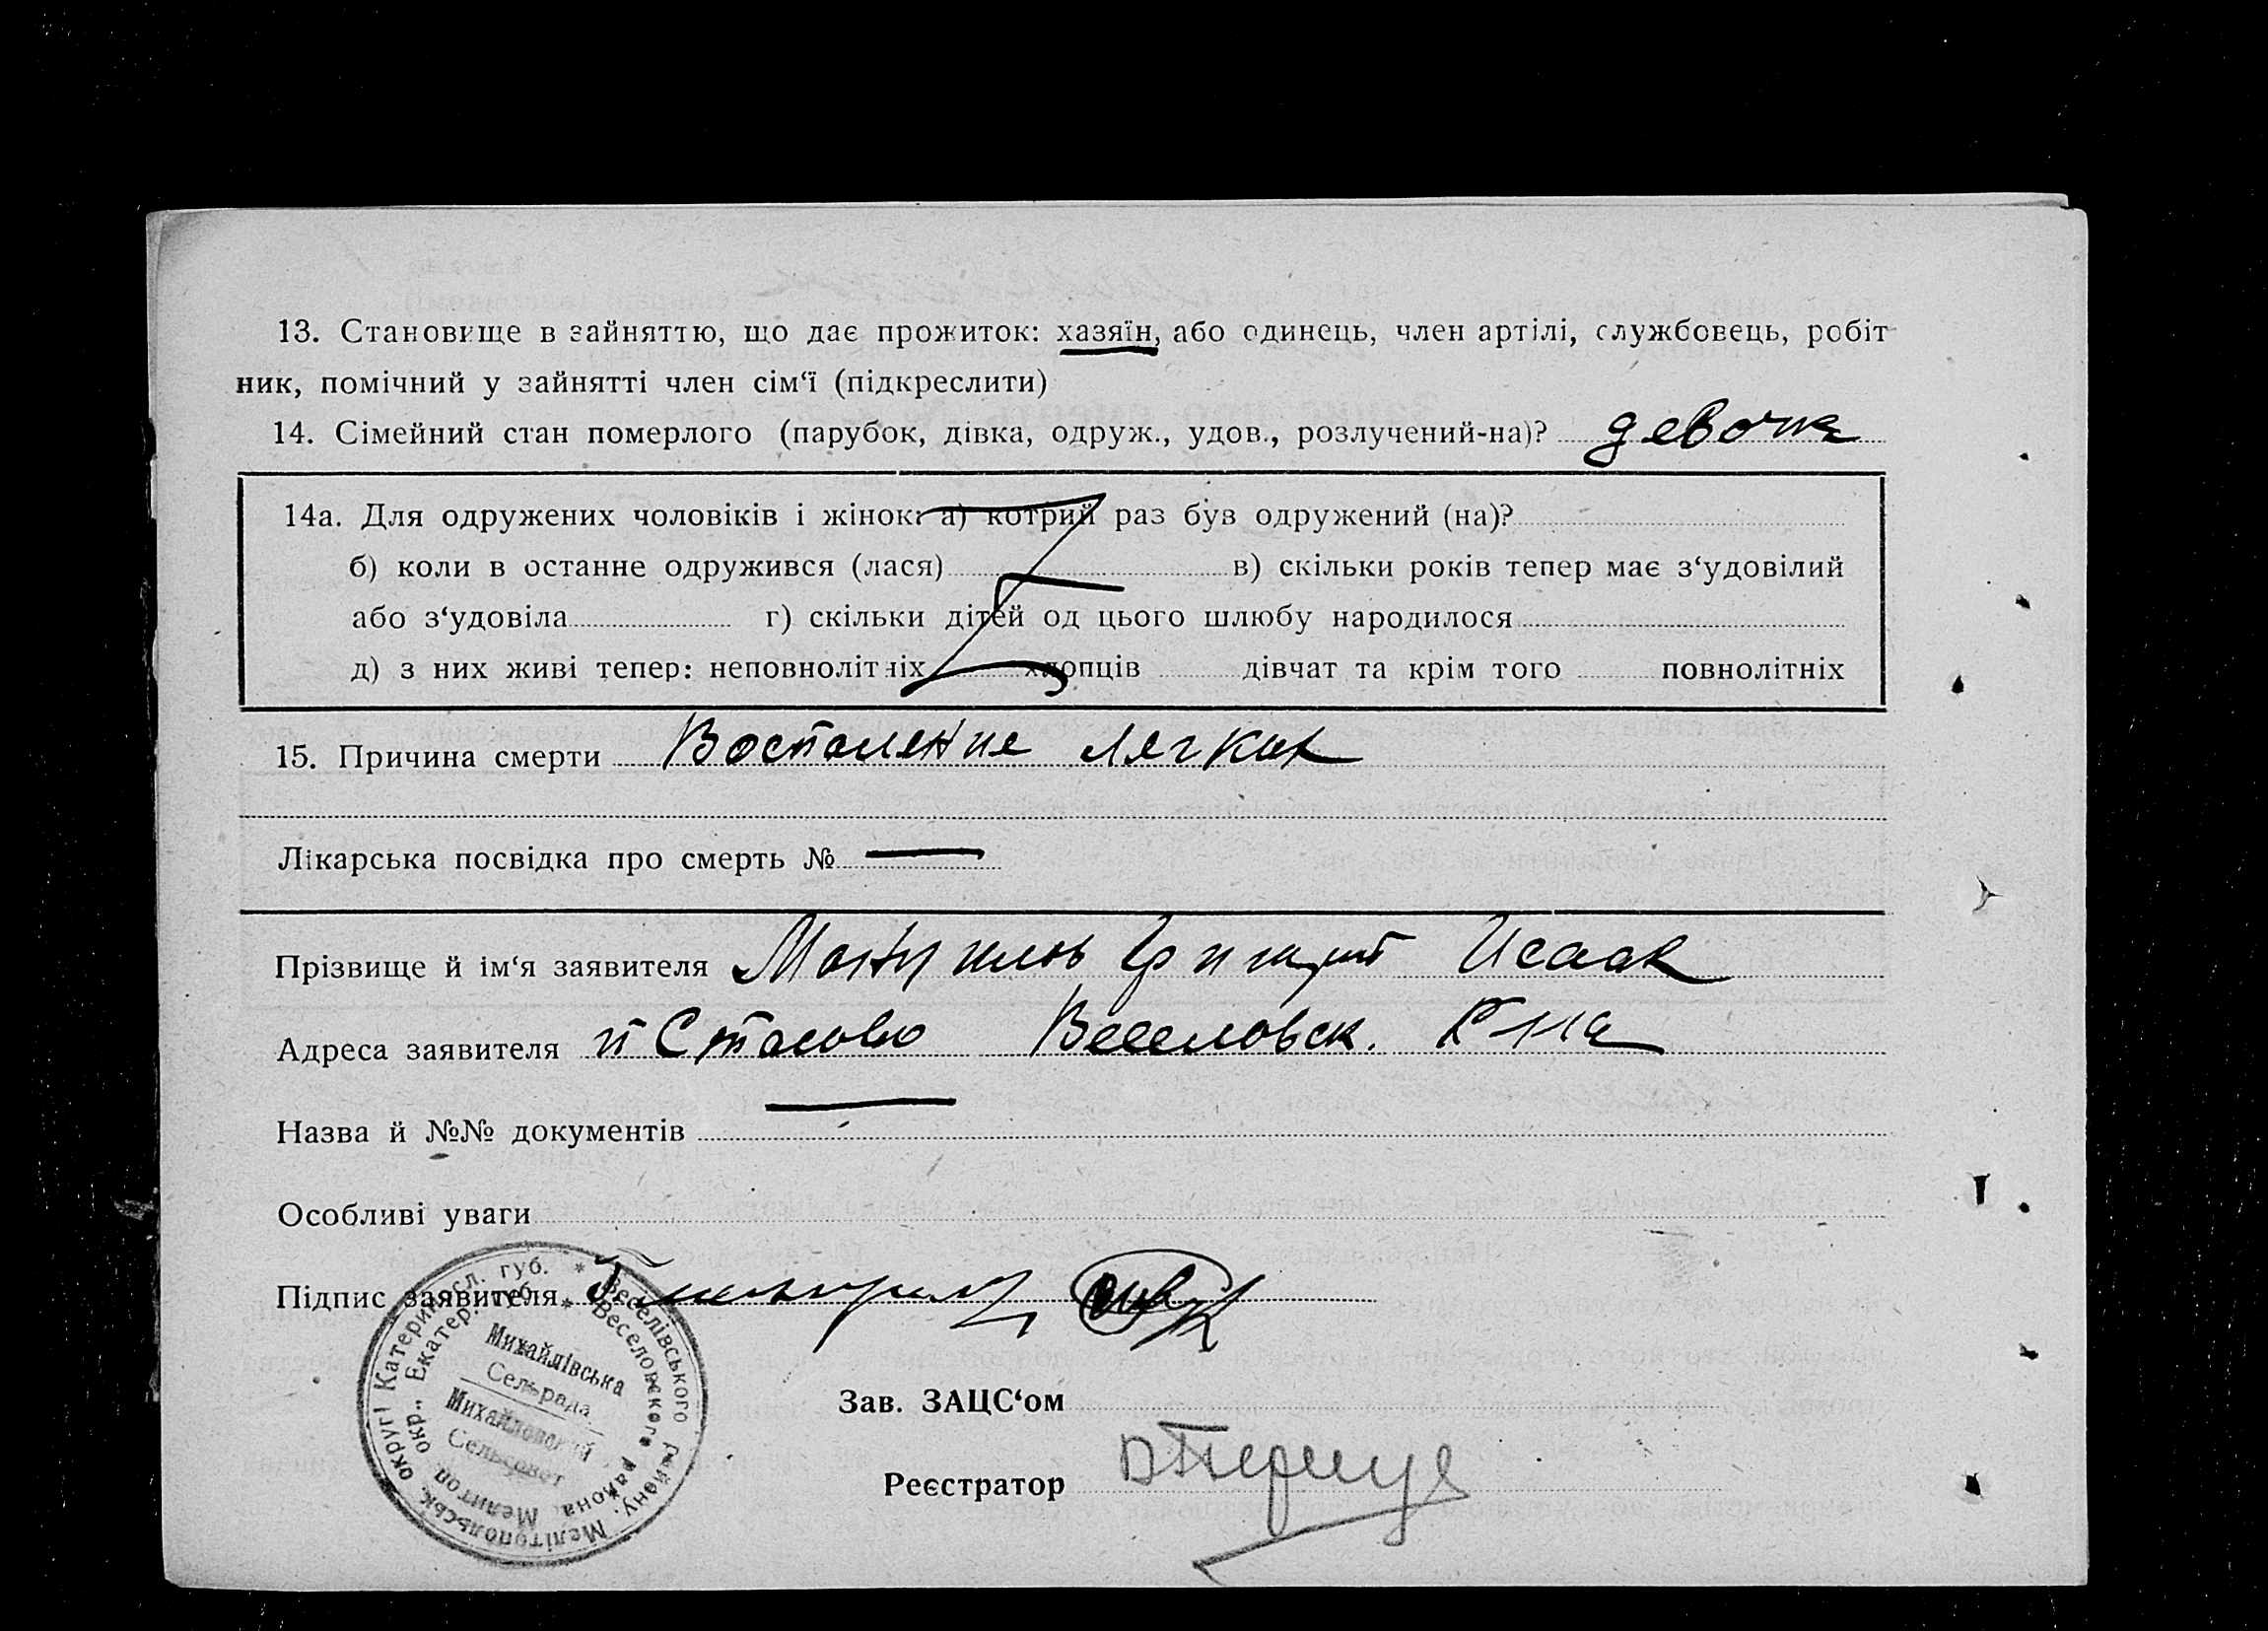 13. Становище в зайняттю, що дає прожиток: хазяїн, або одинець, член артілі, службовець, робіт
ник, помічний у зайнятті член сім‘ї (підкреслити)
14. Сімейний стан померлого (парубок, дівка, одруж., удов., розлучений-на)? девочка
14а. Для одружених чоловіків і жінок: а) котрий раз був одружений (на)?
б) коли в останне одружився (лася) в) скільки років тепер має з‘удовілий
або з‘удовіла г) скільки дітей од цього шлюбу народилося
д) з них живі тепер: неповнолітніх хлопців дівчат та крім того повнолітніх
15. Причина смерти Воспаление легких
Лікарська посвідка про смерть №
Прізвище й ім‘я заявителя Исаак
Адреса заявителя Веселовск. Р-на
Назва й №№ документів
Особливі уваги
Підпис заявителя
Зав. ЗАЦС‘ом
Реєстратор
Веселівського району. Мелітопольськ. округі Катериносл. губ.
Веселовского района Мелитоп. окр. Екатер. губ.
Михайлівська
Сельрада
Михайловский
Сельсовет